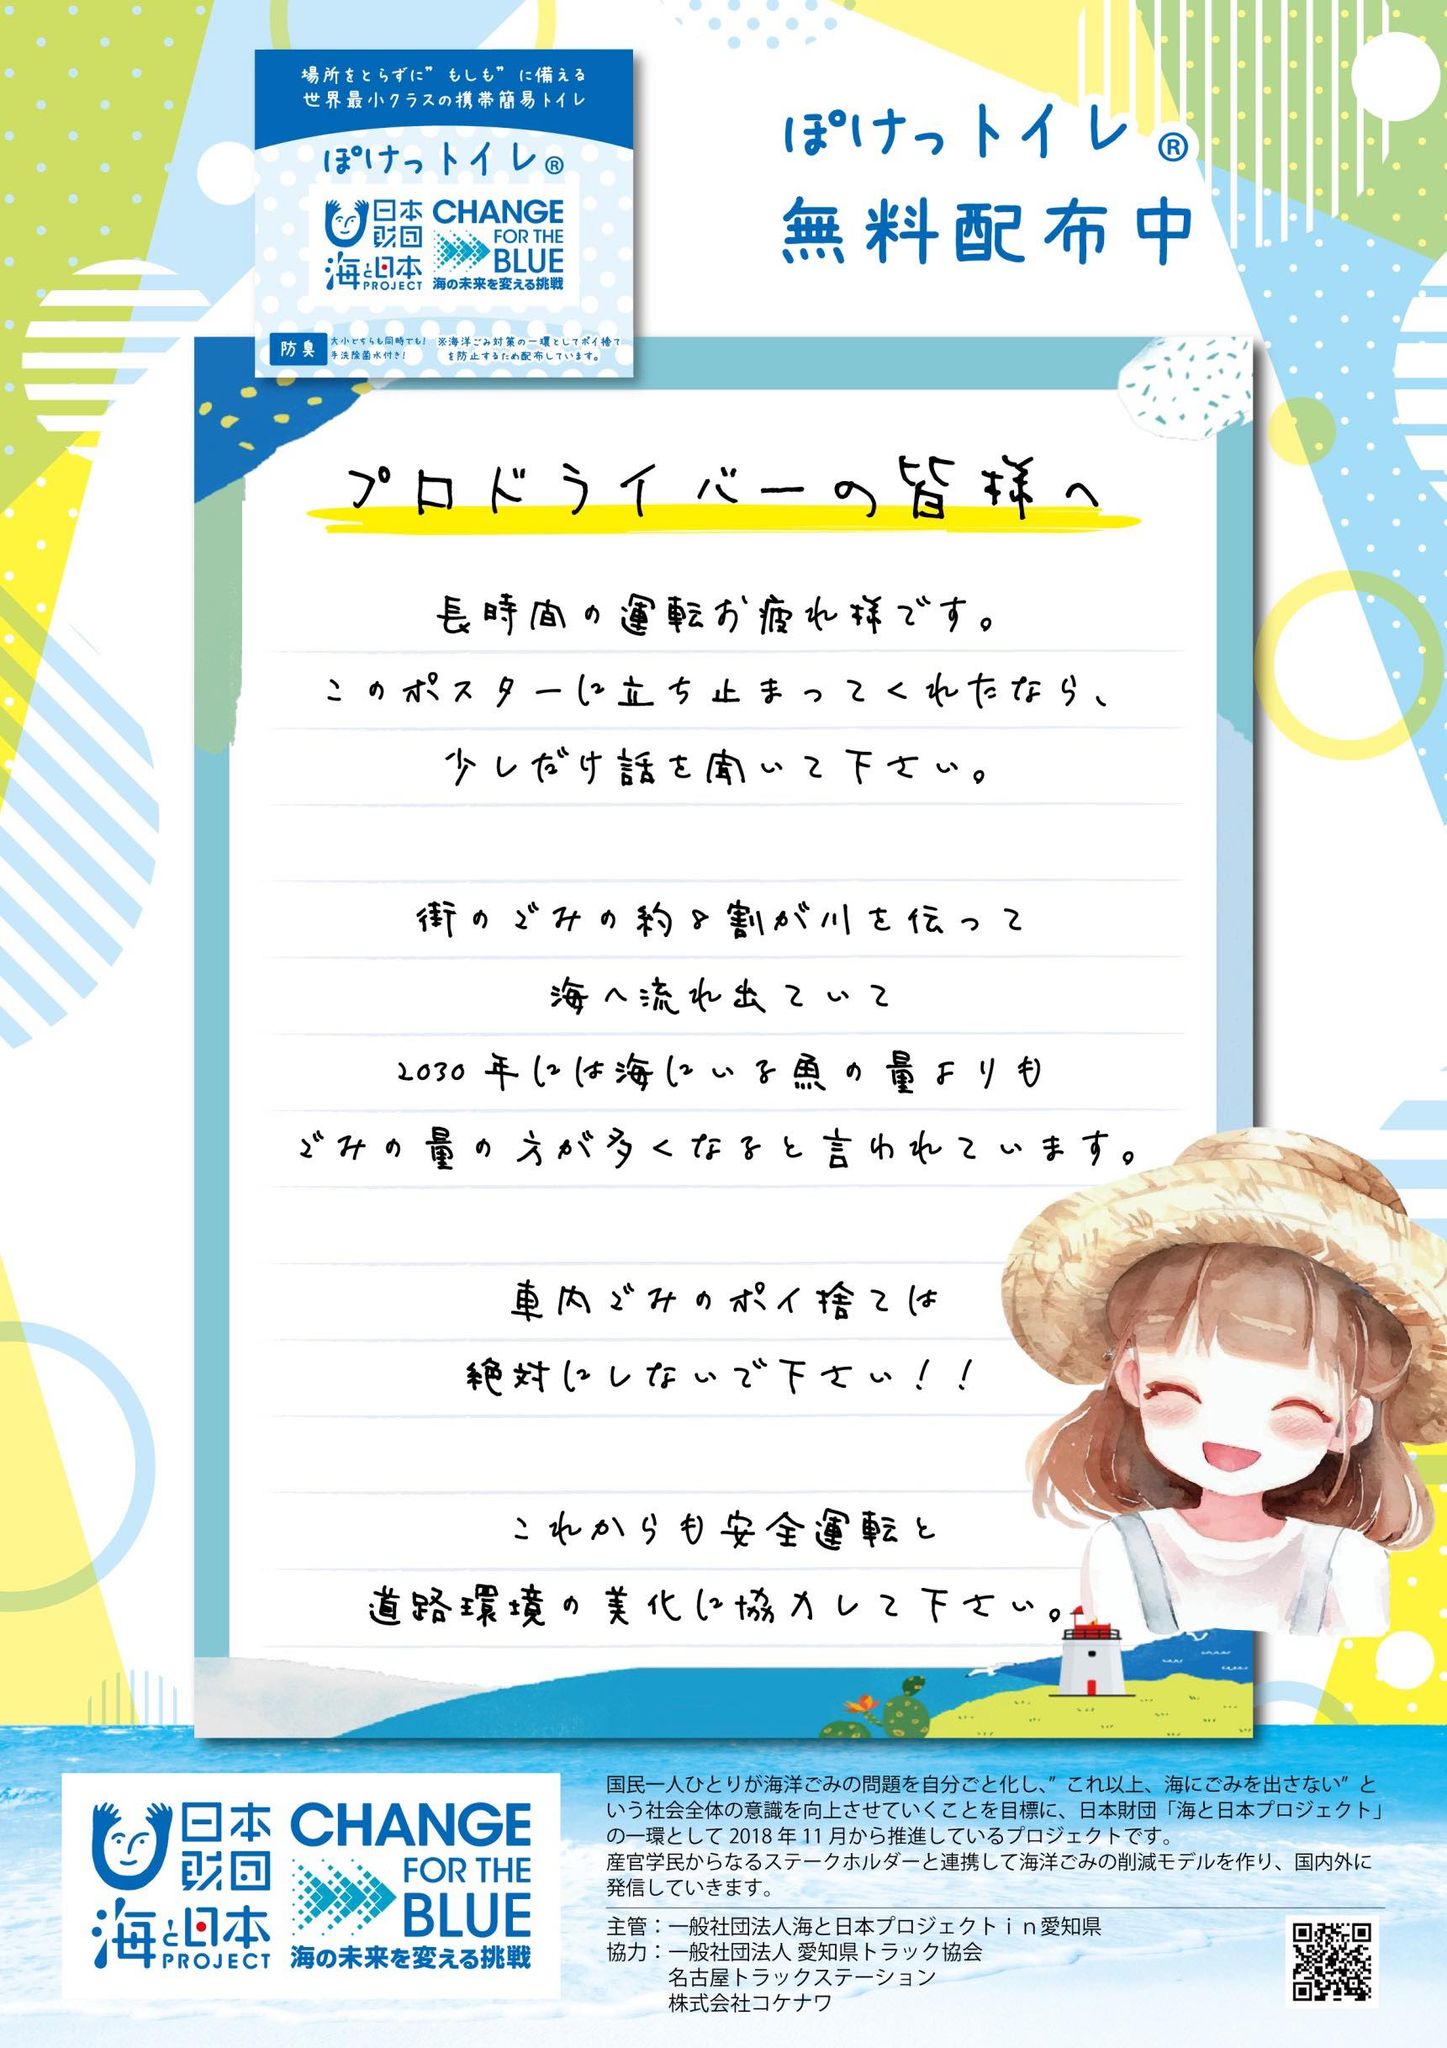 場所をとらずに”もしも”に備える
世界最小クラスの携帯簡易トイレ
ぽけっトイレ®
日本
財団
海と日本
PROJECT
CHANGE
FOR THE
BLUE
海の未来を変える挑戦
防臭
大小どちらも同時でも!
手洗除菌水付き!
※海洋ごみ対策の一環としてポイ捨て
を防止するため配布しています。
ぽけっトイレ®
無料配布中
プロドライバーの皆様へ
長時間の運転お疲れ様です。
このポスターに立ち止まってくれたなら、
少しだけ話を聞いて下さい。
街のごみの約8割が川を伝って
海へ流れ出ていて
2030年には海にいる魚の量よりも
ごみの量の方が多くなると言われています。
車内ごみのポイ捨ては
絶対にしないで下さい!!
これからも安全運転と
道路環境の美化に協力して下さい。
日本
財団
海と日本
PROJECT
CHANGE
FOR THE
BLUE
海の未来を変える挑戦
国民一人ひとりが海洋ごみの問題を自分ごと化し、”これ以上、海にごみを出さない”と
いう社会全体の意識を向上させていくことを目標に、日本財団「海と日本プロジェクト」
の一環として2018年11月から推進しているプロジェクトです。
産官学民からなるステークホルダーと連携して海洋ごみの削減モデルを作り、国内外に
発信していきます。
主管:一般社団法人海と日本プロジェクトin愛知県
協力:一般社団法人 愛知県トラック協会
名古屋トラックステーション
株式会社コケナワ